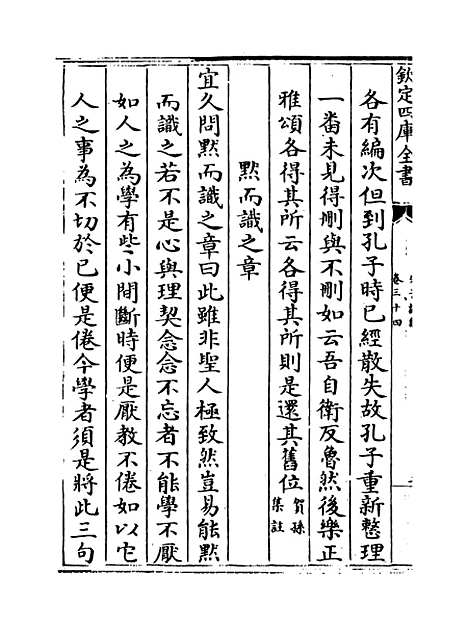 欽定四庫全書
卷三十四
各有編次但到孔子時已經散失故孔子重新整理
一番未見得刪與不刪如云吾自衛反魯然後樂正
雅頌各得其所云各得其所則是還其舊位賀孫集註
默而識之章
宜久問默而識之章曰此雖非聖人極致然豈易能默
而識之若不是心與理契念念不忘者不能學不厭
如人之為學有些小間斷時便是厭教不倦如以它
人之事為不切於己便是倦今學者須是將此三句